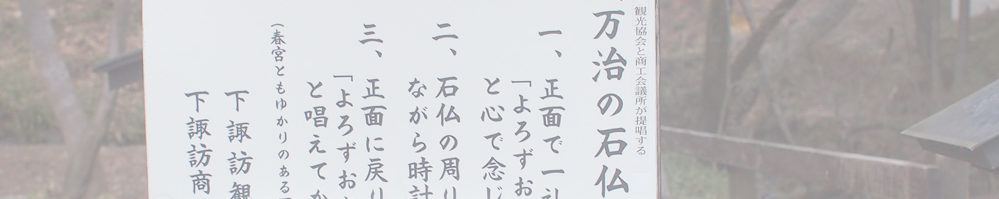 観光協会と商工会議所が提唱する
万治の石仏
一、正面で一礼
「よろずお
と心で念じ
二、石仏の周り
ながら時計
三、正面に戻り
「よろずお
と唱えてか
（春宮ともゆかりのある
下諏訪観
下諏訪商